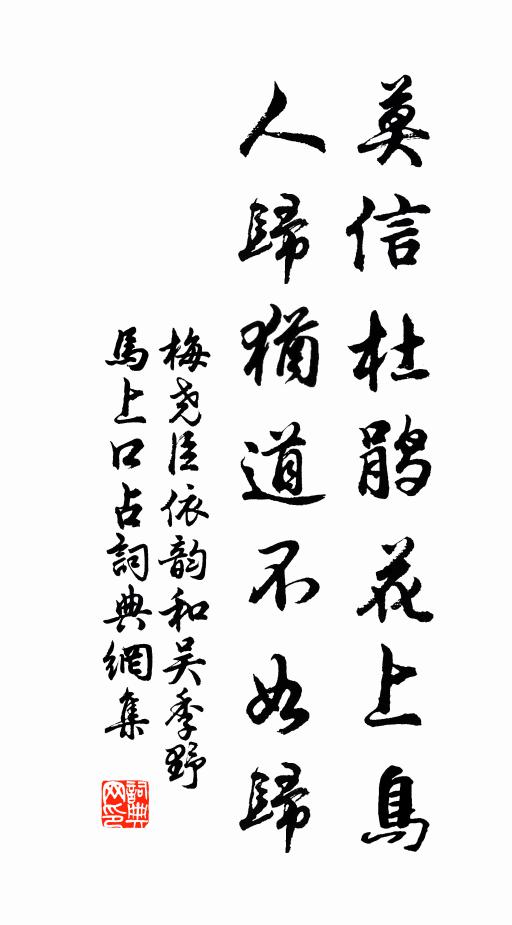 莫信杜鹃花上鳥
人歸猶道不如歸
梅尧臣依韵和吴季野
馬上口占詞典網集
詞典
网印